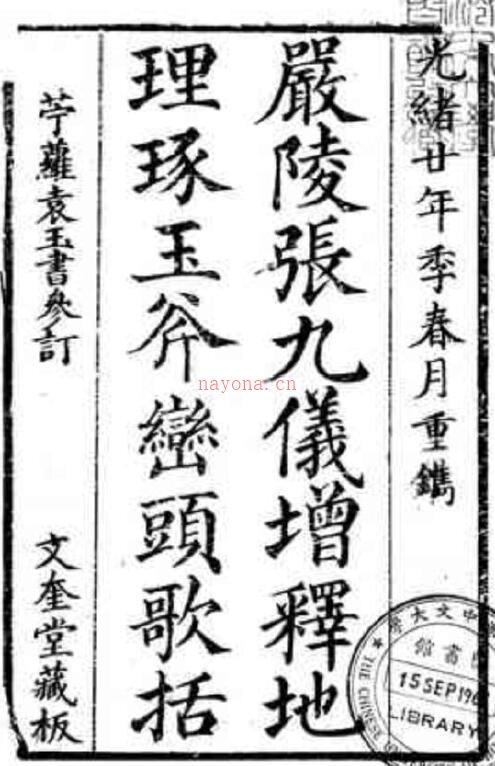 光緒廿年季春月重鐫
嚴陵張九儀增釋地
理琢玉斧巒頭歌括
苧蘿袁玉書參訂
文奎堂藏板
nayona.cn
中文大學
圖書館
15 SEP 196
LIBRARY
THE CHINESE